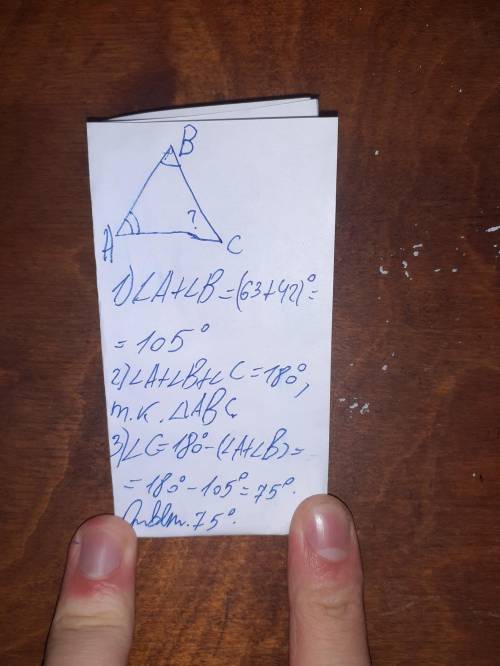 B
A
?
C
1) ∠A+∠B=(63+42)°=
=105°
2) ∠A+∠B+∠C=180°,
т.к. △ABC
3) ∠C=180°-(∠A+∠B)=
=180°-105°=75°.
Ответ. 75°.